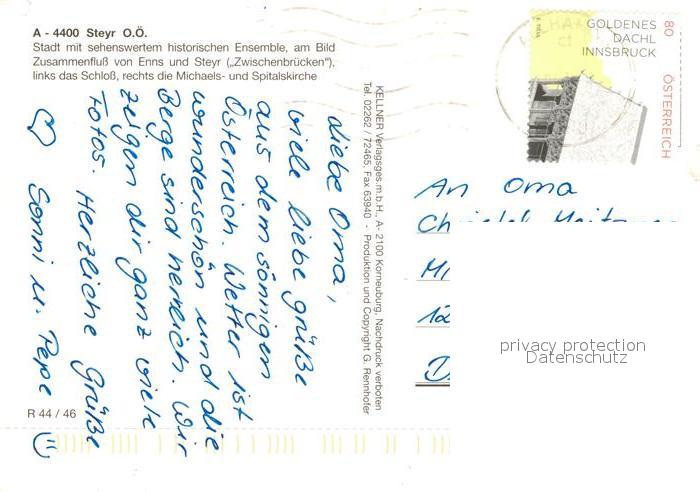 A - 4400 Steyr O.Ö.
Stadt mit sehenswertem historischen Ensemble, am Bild
Zusammenfluß von Enns und Steyr („Zwischenbrücken“),
links das Schloß, rechts die Michaels- und Spitalskirche
liebe Oma,
viele liebe grüße
aus dem sonnigen
Österreich. Wetter ist
wunderschön und die
Berge sind herrlich. Wir
zeigen dir ganz viele
Fotos. Herzliche Grüße
♡ Sonni u. Pepe
R 44 / 46
KELLNER Verlagsges.m.b.H., A- 2100 Korneuburg, Nachdruck verboten
Tel. 02262 / 72465, Fax 63940 - Produktion und Copyright G. Rennhofer
GOLDENES
DACHL
INNSBRUCK
80
ÖSTERREICH
An Oma
privacy protection
Datenschutz